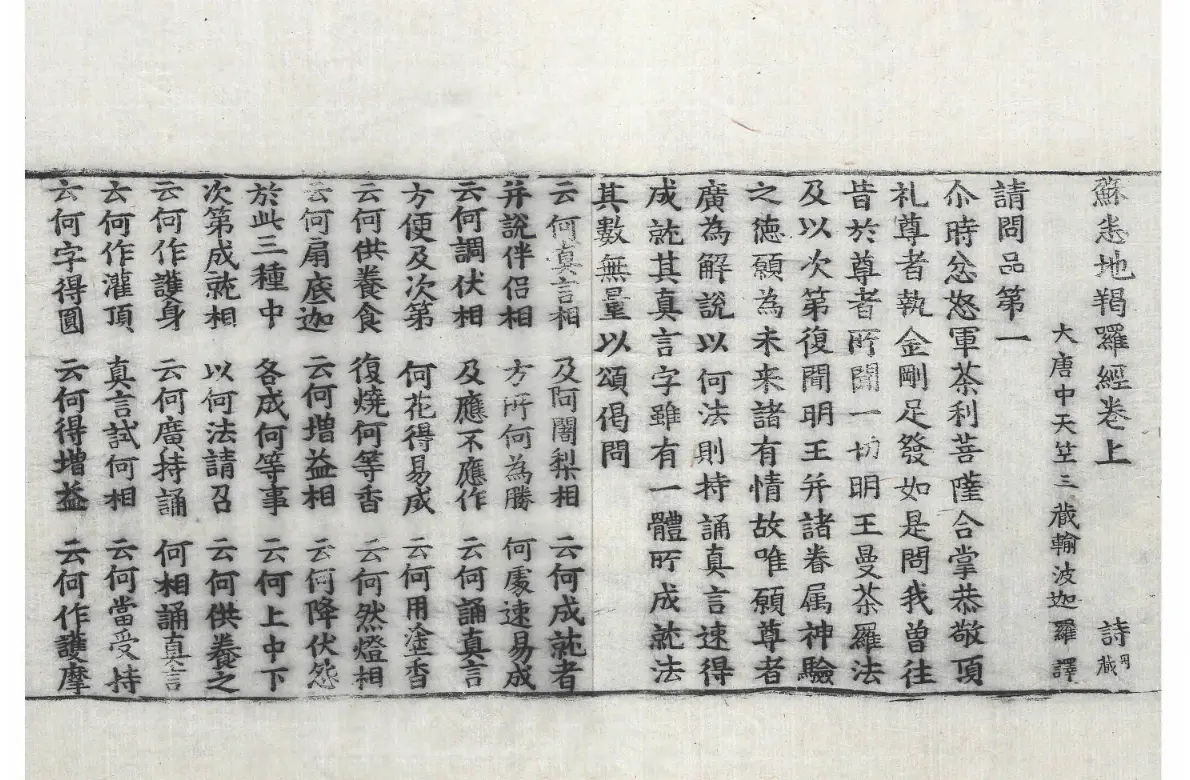 蘇悉地羯羅經卷上 詩 円蔵
大唐中天笁三蔵輸波迦羅譯
請問品第一
尒時忿怒軍荼利菩薩合掌恭敬頂
礼尊者執金剛足發如是問我曽往
昔於尊者所聞一切明王曼荼羅法
及以次第復聞明王并諸眷属神驗
之德願為未来諸有情故唯願尊者
廣為解說以何法則持誦真言速得
成就其真言字雖有一體所成就法
其數無量以頌偈問
云何真言相 及阿闍梨相 云何成就者
并說伴侣相 方所何為勝 何處速易成
云何調伏相 及應不應作 云何誦真言
方便及次第 何花得易成 云何用塗香
云何供養食 復燒何等香 云何然燈相
云何扇底迦 云何增益相 云何降伏怨
於此三種中 各成何等事 云何上中下
次第成就相 以何法請召 云何供養之
云何作護身 云何廣持誦 何相誦真言
云何作灌頂 真言試何相 云何當受持
云何字得圓 云何得増益 云何作護摩